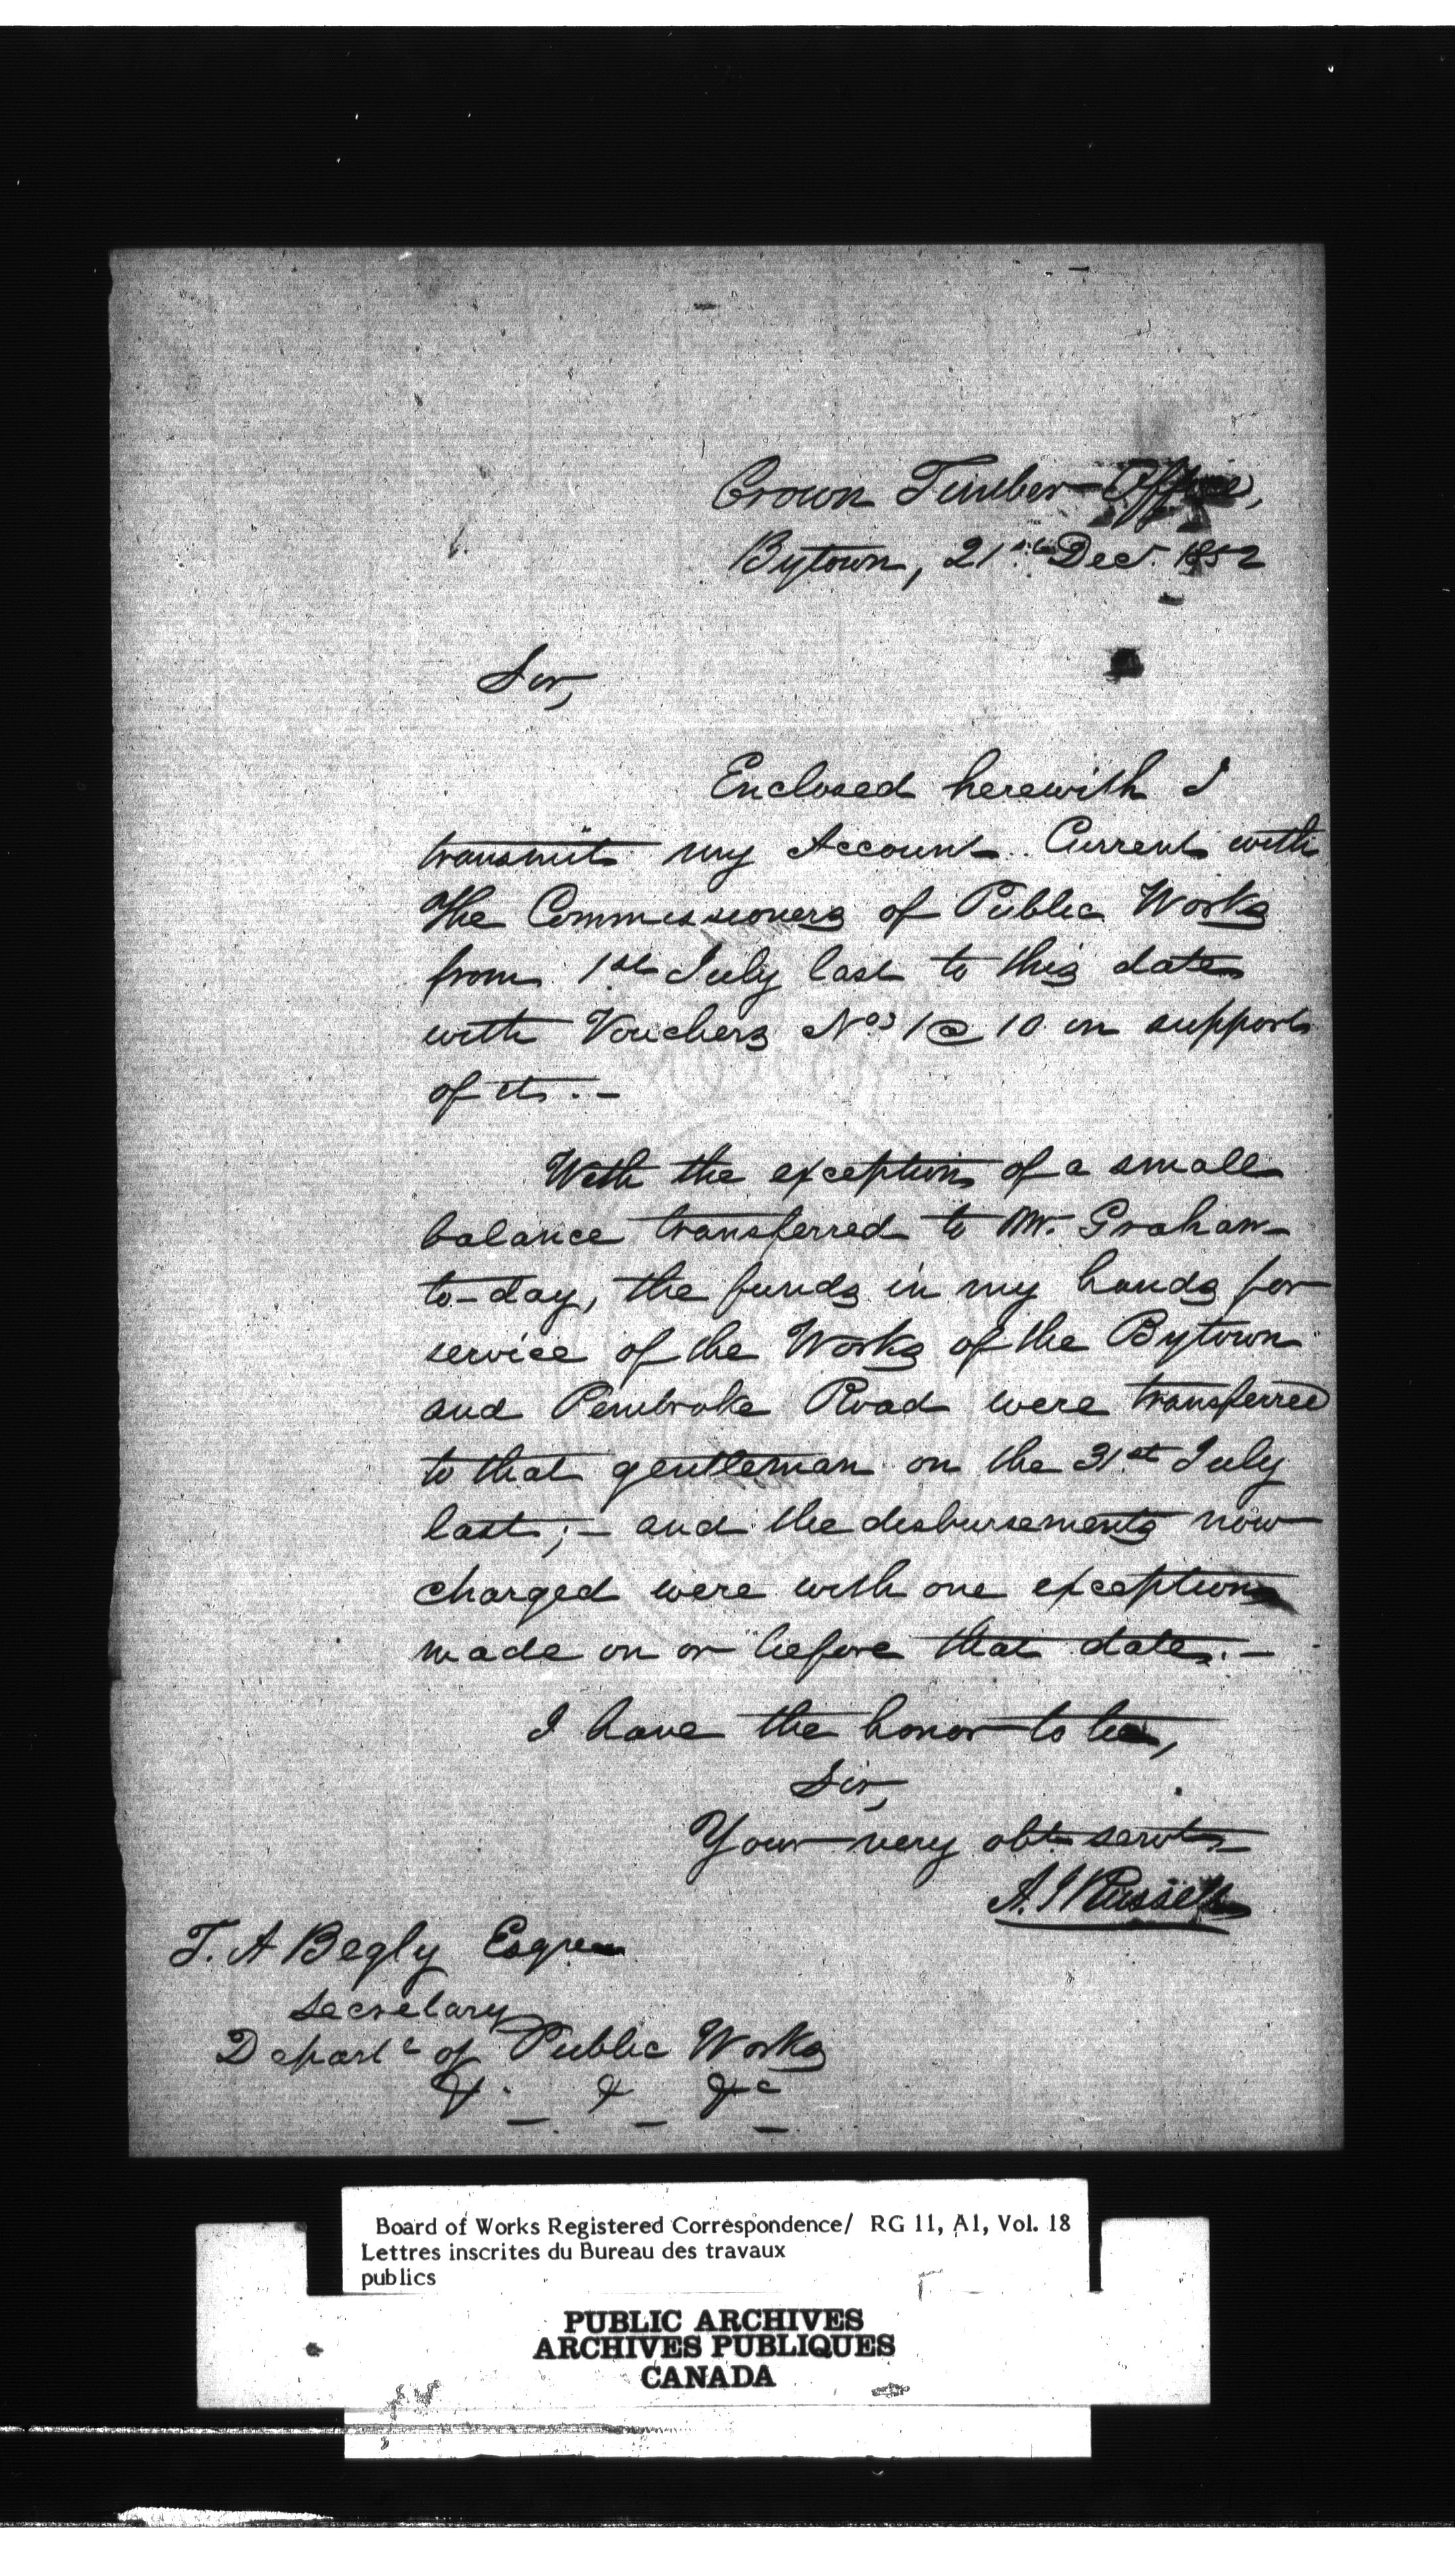 Crown Timber Office,
Bytown, 21st Decr. 1852
Sir,
Enclosed herewith I
transmit my Account Current with
the Commissioners of Public Works
from 1st July last to this date
with Vouchers Nos 1 @ 10 in support
of it.-
With the exception of a small
balance transferred to Mr. Graham
to-day, the funds in my hands for
service of the Works of the Bytown
and Pembroke Road were transferred
to that gentleman on the 31st July
last;- and the disbursements now
charged were with one exception
made on or before that date.-
I have the honor to be,
Sir,
Your very obt servt
A. J Russell
T. A Begly Esqre
Secretary
Depart t of Public Works
&. _ & _ &c
Board of Works Registered Correspondence/ RG 11, A1, Vol. 18
Lettres inscrites du Bureau des travaux
publics
PUBLIC ARCHIVES
ARCHIVES PUBLIQUES
CANADA